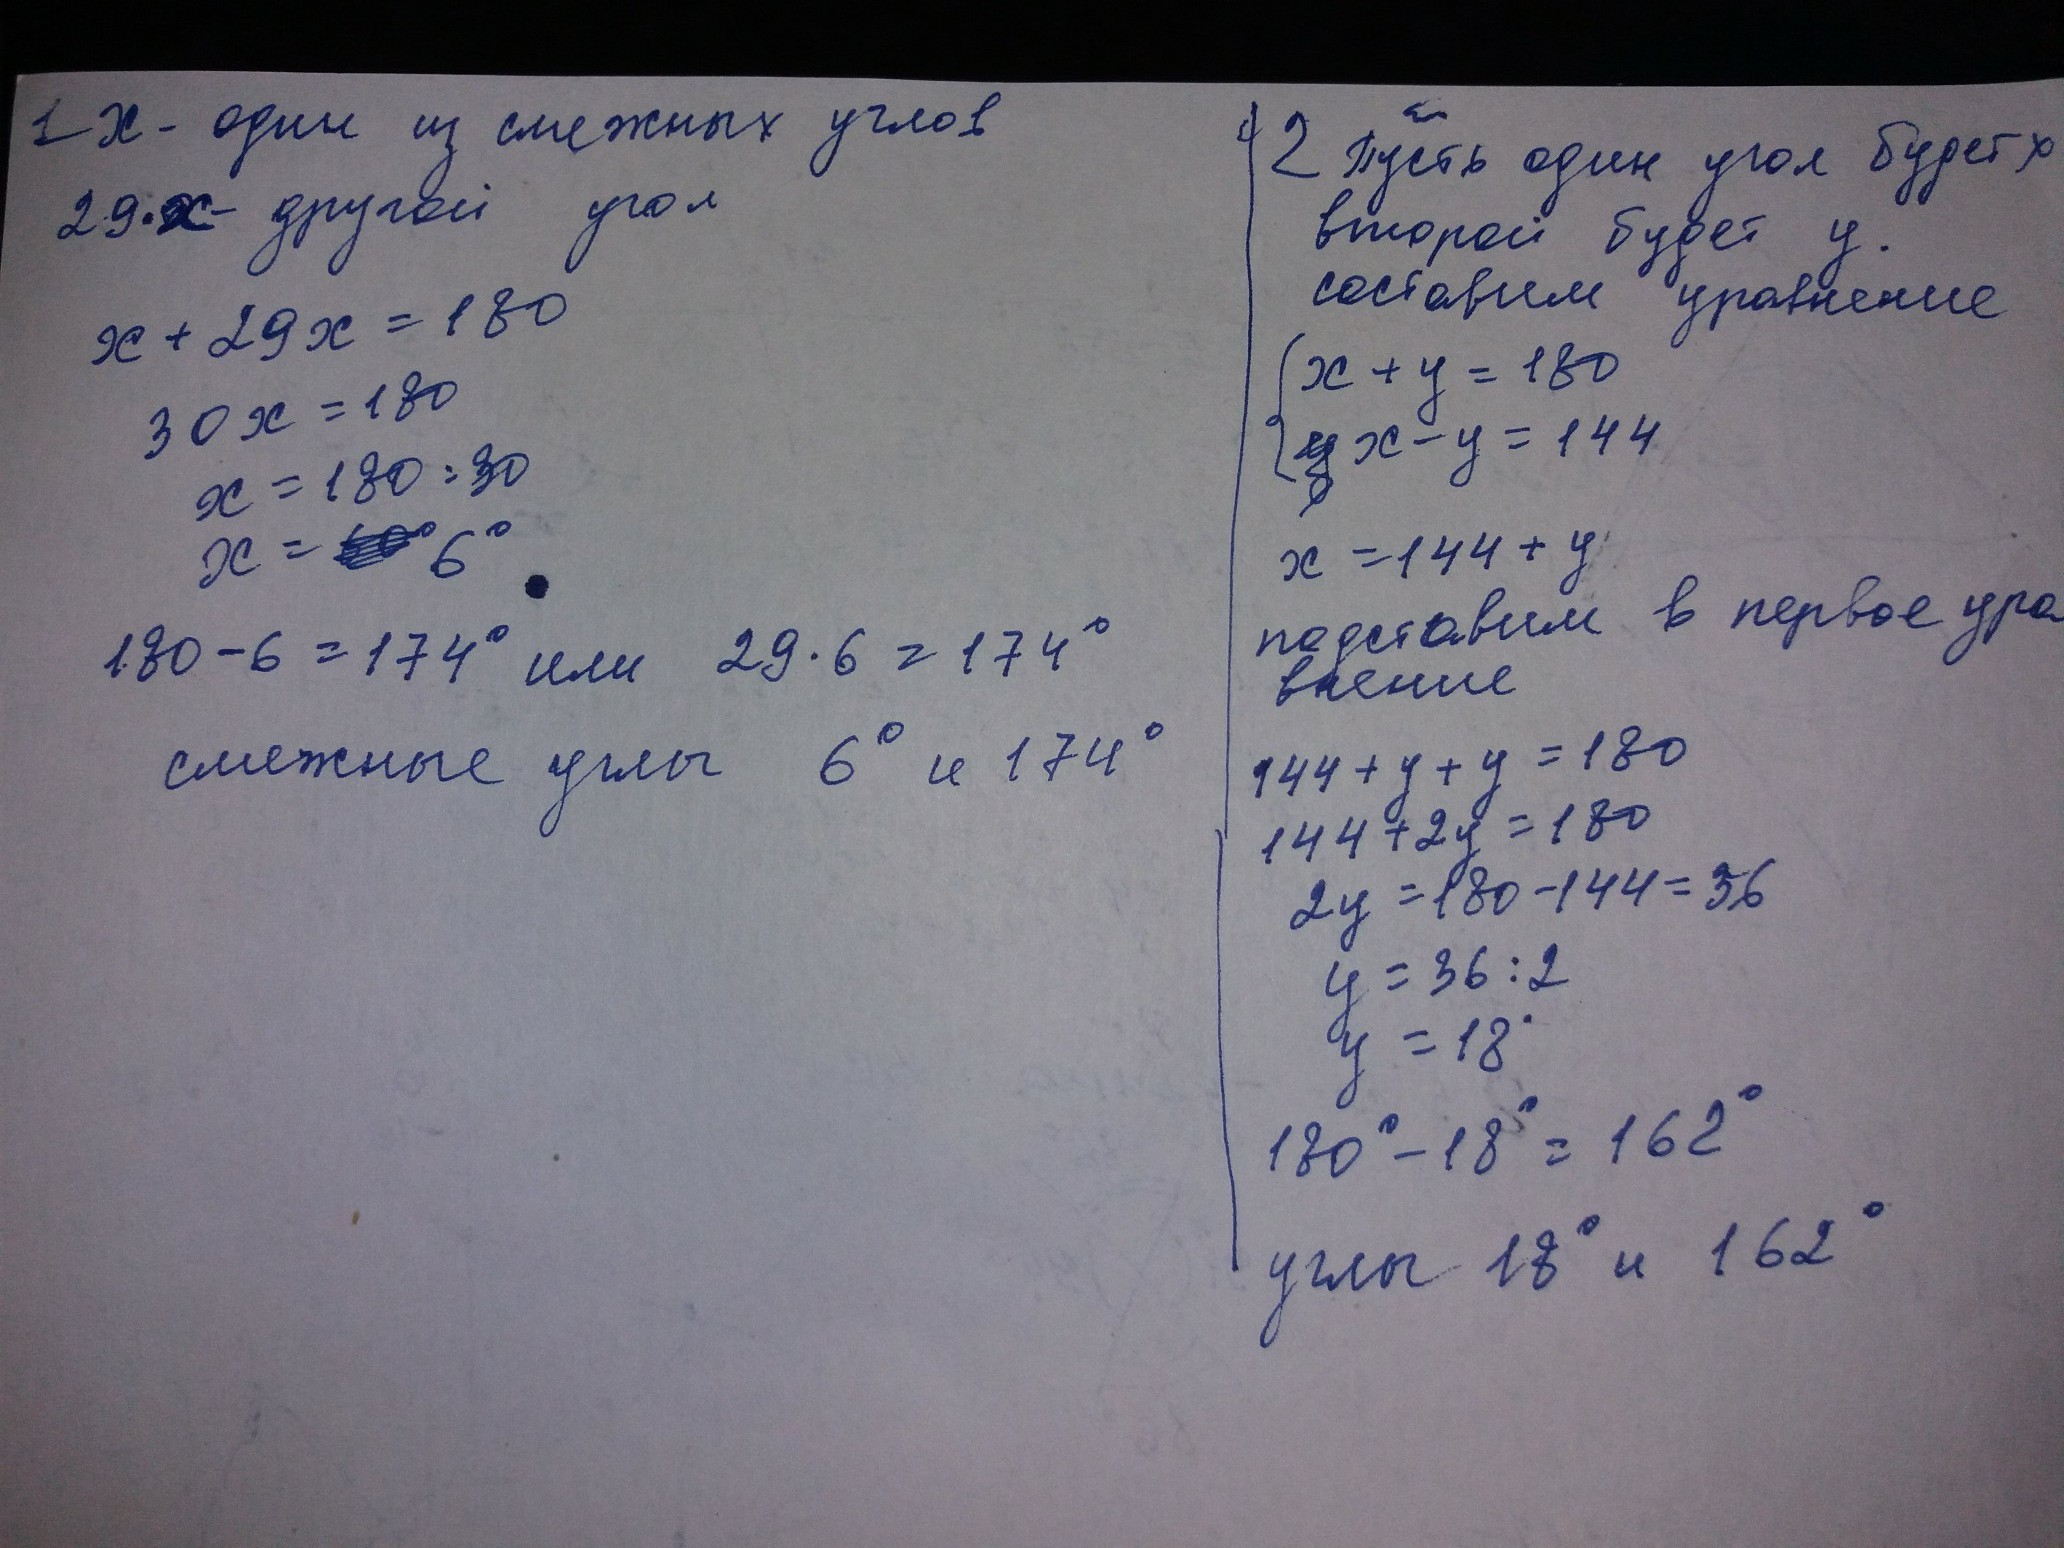 1 х - один из смежных углов
29·х - другой угол
х + 29х = 180
30х = 180
х = 180 : 30
х = 6°
180 - 6 = 174° или 29·6 = 174°
смежные углы 6° и 174°
2 Пусть один угол будет х
второй будет у.
составим уравнение
х + у = 180
х - у = 144
х = 144 + у
подставим в первое ура
внение
144 + у + у = 180
144 + 2у = 180
2у = 180 - 144 = 36
у = 36 : 2
у = 18°
180° - 18° = 162°
углы 18° и 162°